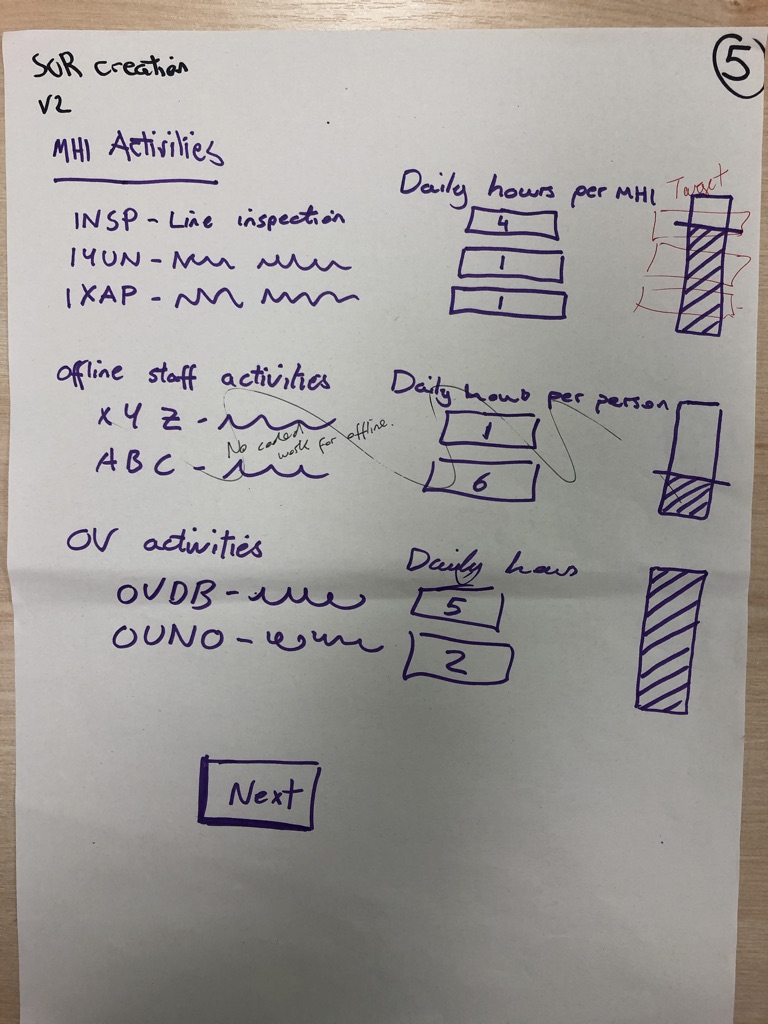 SOR creation
5
V2
MHI Activities
Daily hours per MHI
Target
INSP - Line inspection
4
IYUN -
1
IXAP -
1
Offline staff activities
Daily hours per person
XYZ -
1
No coded work for offline.
ABC -
6
OV activities
Daily hours
OVDB -
5
OUNO -
2
Next